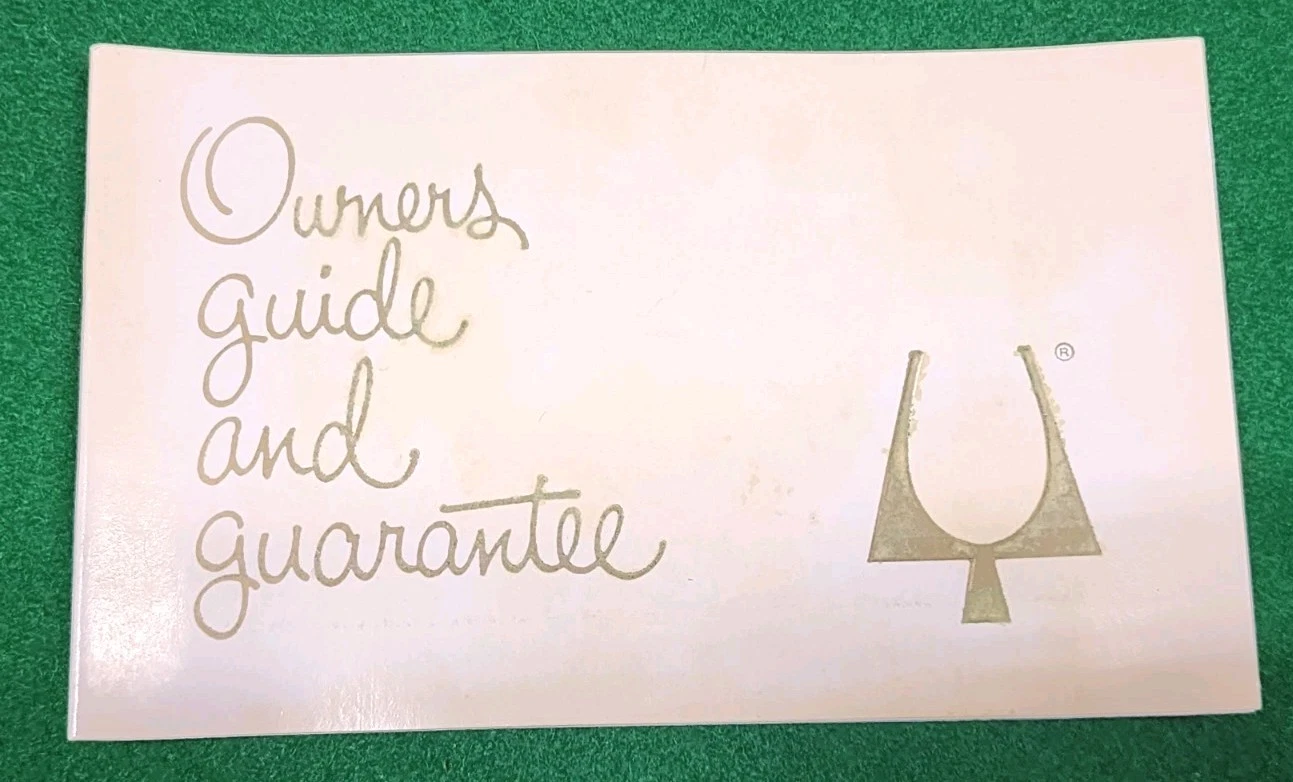 Owners
guide
and
guarantee
®